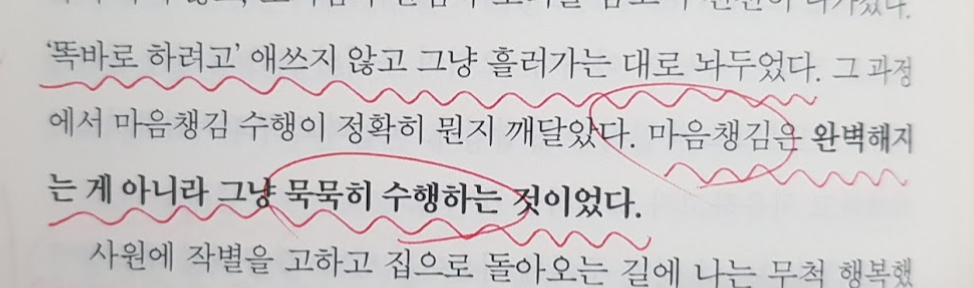 ‘똑바로 하려고’ 애쓰지 않고 그냥 흘러가는 대로 놔두었다. 그 과정
에서 마음챙김 수행이 정확히 뭔지 깨달았다. 마음챙김은 완벽해지
는 게 아니라 그냥 묵묵히 수행하는 것이었다.
사원에 작별을 고하고 집으로 돌아오는 길에 나는 무척 행복했